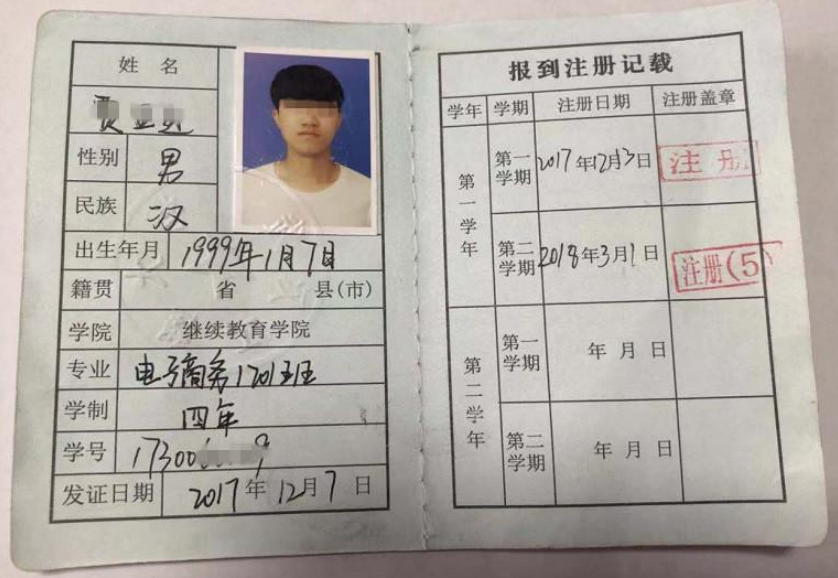 姓 名
贾
性别 男
民族 汉
出生年月 1999年1月7日
籍贯 省 县(市)
学院 继续教育学院
专业 电子商务1701班
学制 四年
学号 17300 9
发证日期 2017年12月7日
报到注册记载
学年 学期 注册日期 注册盖章
第一学年 第一学期 2017年12月3日 注册
第二学期 2018年3月1日 注册(5
第二学年 第一学期 年 月 日
第二学期 年 月 日